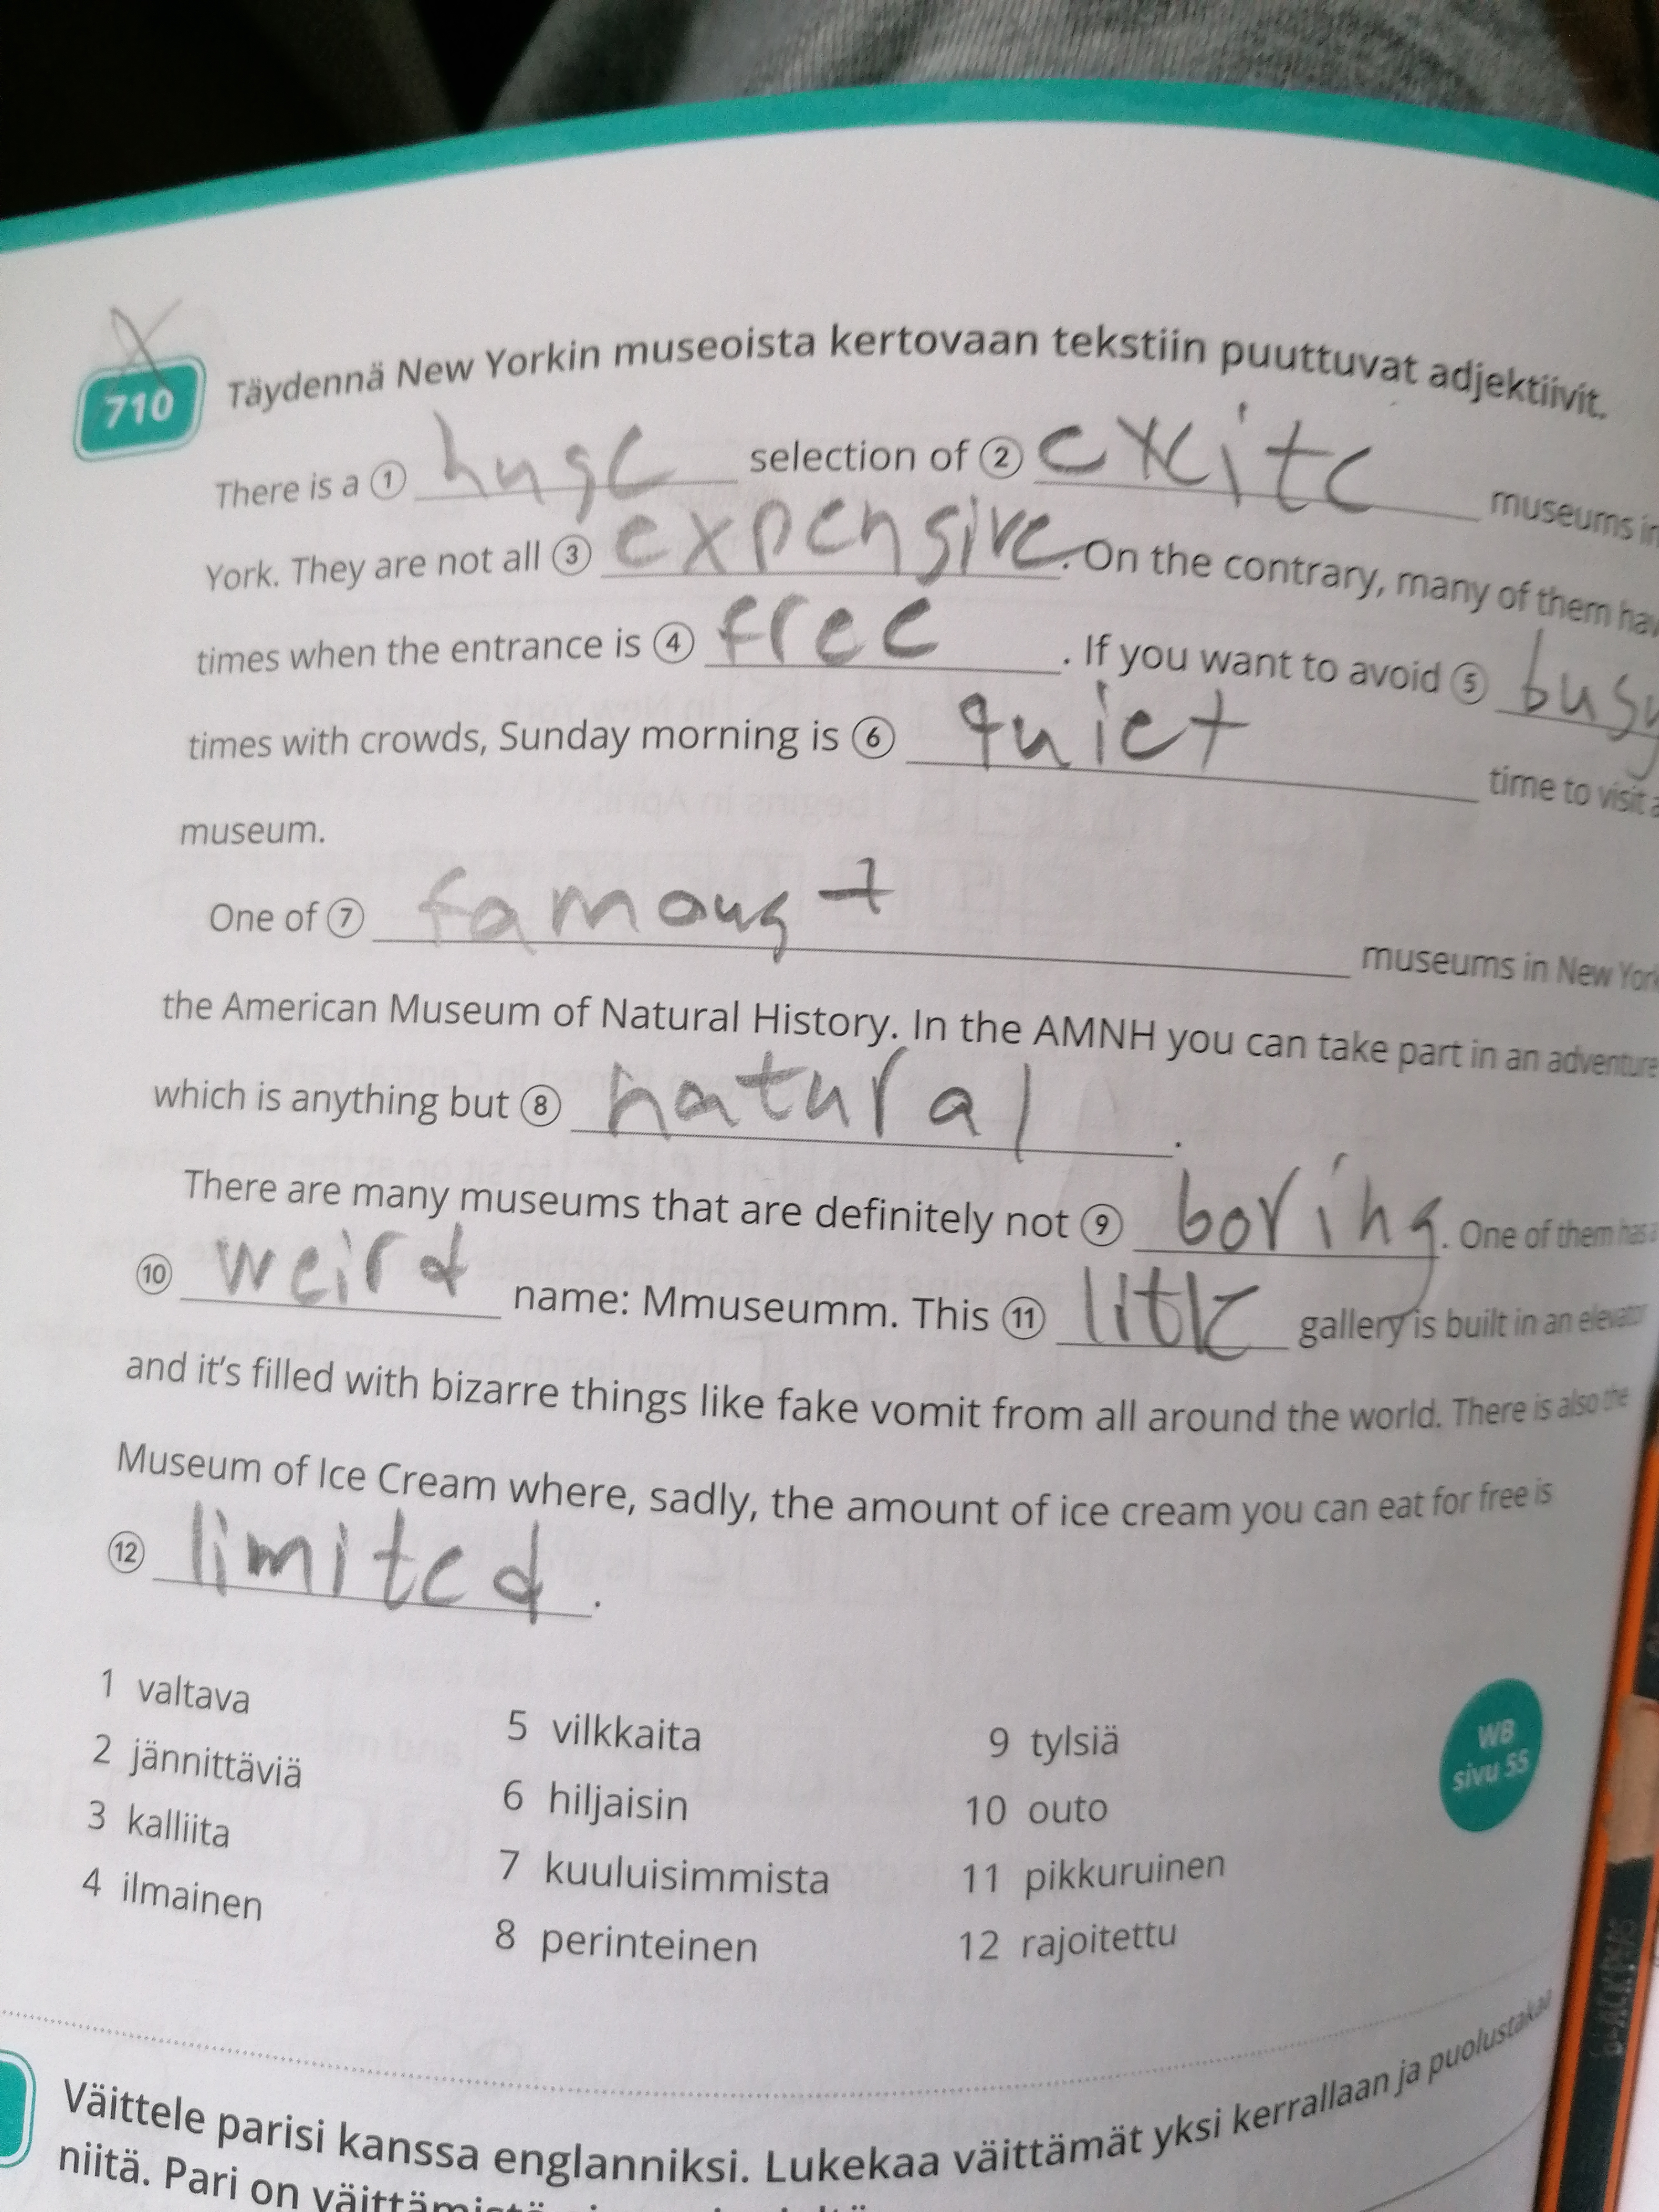 710 Täydennä New Yorkin museoista kertovaan tekstiin puuttuvat adjektiivit.
There is a ① huge selection of ② exite museums in
York. They are not all ③ expensive. On the contrary, many of them hav
times when the entrance is ④ free. If you want to avoid ⑤ busy
times with crowds, Sunday morning is ⑥ quiet time to visit a
museum.
One of ⑦ famoust museums in New York
the American Museum of Natural History. In the AMNH you can take part in an adventure
which is anything but ⑧ natural.
There are many museums that are definitely not ⑨ boring. One of them has a
⑩ weird name: Mmuseumm. This ⑪ litle gallery is built in an elevator
and it's filled with bizarre things like fake vomit from all around the world. There is also the
Museum of Ice Cream where, sadly, the amount of ice cream you can eat for free is
⑫ limited.
1 valtava
2 jännittäviä
3 kalliita
4 ilmainen
5 vilkkaita
6 hiljaisin
7 kuuluisimmista
8 perinteinen
9 tylsiä
10 outo
11 pikkuruinen
12 rajoitettu
WB
sivu 55
Väittele parisi kanssa englanniksi. Lukekaa väittämät yksi kerrallaan ja puolustakaa
niitä. Pari on